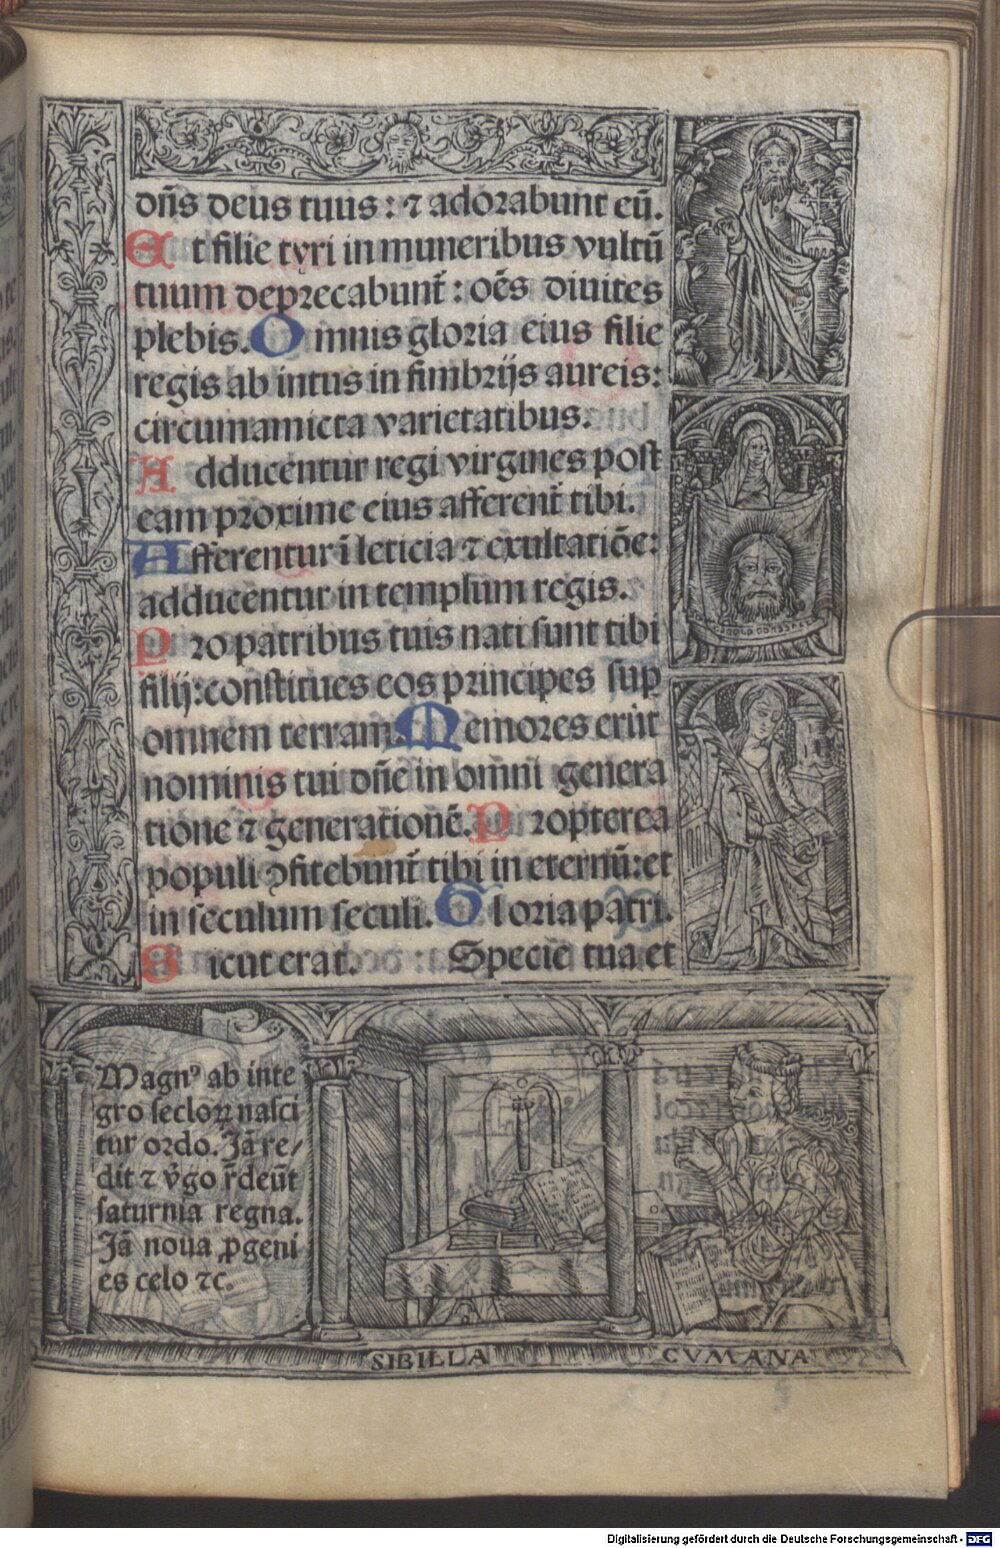 dn̄s deus tuus : ⁊ adorabunt eū.
Et filie tyri in muneribus vultū
tuum deprecabunt̄ : oēs diuites
plebis. Omnis gloria eius filie
regis ab intus in fimbrijs aureis:
circumamicta varietatibus.
Adducentur regi virgines post
eam proxime eius afferent̄ tibi.
Afferentur ī leticia ⁊ exultatiōe:
adducentur in templum regis.
Pro patribus tuis nati sunt tibi
filij: constitues eos principes sup
omnem terram. Memores erūt
nominis tui dn̄e in omni genera
tione ⁊ generationē. Propterea
populi ꝯfitebunt̄ tibi in eternū: et
in seculum seculi. Gloria patri.
Sicut erat. Specie tua et
Magnꝰ ab inte
gro secloꝝ nasci
tur ordo. Jā re/
dit ⁊ v̄go r̄deūt
saturnia regna.
Jā noua ꝓgeni
es celo ⁊c.
SIBILLA CVMANA
Digitalisierung gefördert durch die Deutsche Forschungsgemeinschaft - DFG